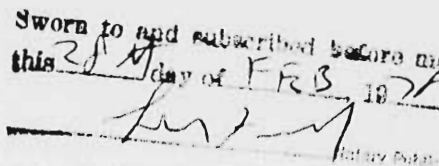 Sworn to and subscribed before me
this 28 day of FEB 197
Notary Public